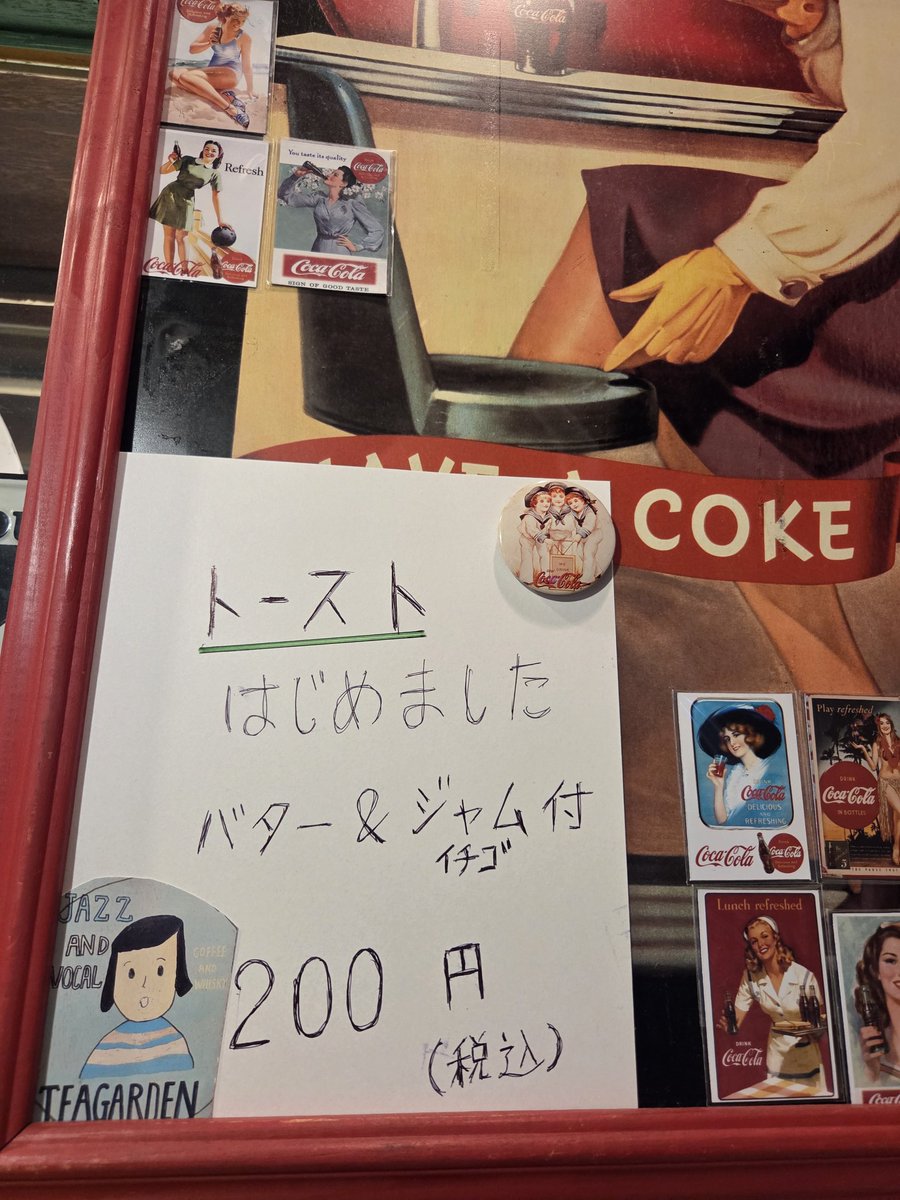 Coca-Cola
Coca-Cola
Refresh
Coca-Cola
Coca-Cola
You taste its quality
Coca-Cola
Coca-Cola
SIGN OF GOOD TASTE
COKE
Coca-Cola
トースト
はじめました
バター&ジャム付
イチゴ
200 円
(税込)
JAZZ
AND
VOCAL
COFFEE
AND
WHISKY
TEAGARDEN
Coca-Cola
DELICIOUS
AND
REFRESHING
Coca-Cola
Coca-Cola
Play refreshed
DRINK
Coca-Cola
IN BOTTLES
Lunch refreshed
DRINK
Coca-Cola